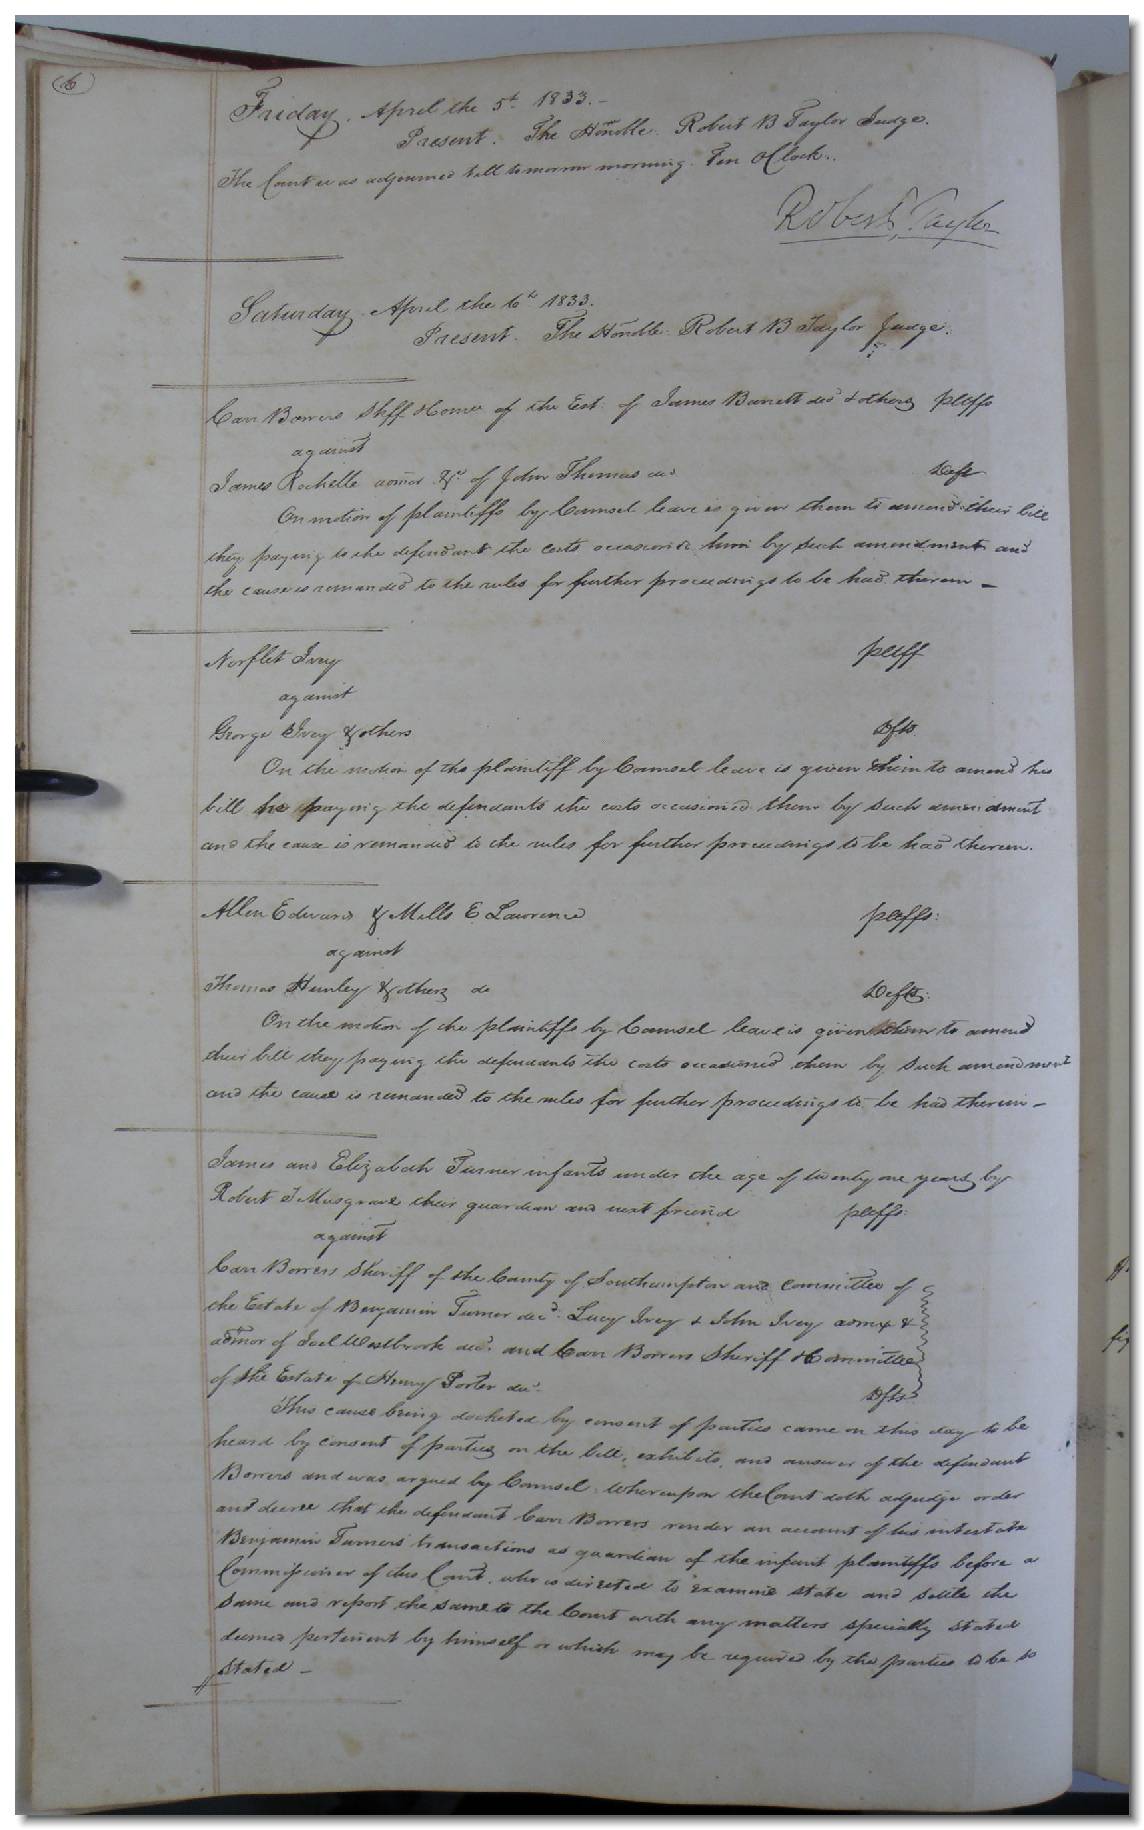 6
Friday, April the 5th 1833.-
Present. The Honble. Robert B Taylor Judge.
The Court was adjourned till tomorrow morning. Ten OClock..
Robert, Taylor
Saturday April the 6th 1833.
Present. The Honble. Robert B Taylor Judge.
Carr Bowers Shff & Comee of the Est. of James Barrett decd & others pltffs
against
James Rochelle admor &c of John Thomas decd Deft
On motion of plaintiffs by Counsel leave is given them to amend their bill
they paying to the defendant the costs occasioned him by such amendment and
the cause is remanded to the rules for further proceedings to be had therein -
Norflet Ivey pltff
against
George Ivey & others Dfts.
On the motion of the plaintiff by Counsel leave is given him to amend his
bill he paying the defendants the costs occasioned them by such amendment
and the cause is remanded to the rules for further proceedings to be had therein.
Allen Edwards & Mills E Lawrence pltffs:
against
Thomas Hunley & others de Defts:
On the motion of the plaintiffs by Counsel leave is given them to amend
their bill they paying the defendants the costs occasioned them by such amendment
and the cause is remanded to the rules for further proceedings to be had therein -
James and Elizabeth Turner infants under the age of twenty one years by
Robert T Musgrave their guardian and next friend pltffs:
against
Carr Bowers Sheriff of the County of Southampton and committee of
the Estate of Benjamin Turner decd. Lucy Ivey & John Ivey admx &
admor of Joel Westbrook decd. and Carr Bowers Sheriff & Committee
of the Estate of Henry Porter decd. Dfts
This cause being docketed by consent of parties came on this day to be
heard by consent of parties on the bill, exhibits, and answer of the defendant
Bowers and was argued by Counsel. Whereupon the Court doth adjudge order
and decree that the defendant Carr Bowers render an account of his intestate
Benjamin Turners transactions as guardian of the infant plaintiffs before a
Commissioner of this Court, who is directed to examine state and settle the
same and report the same to the Court with any matters specially stated
deemed pertinent by himself or which may be required by the parties to be so
stated -